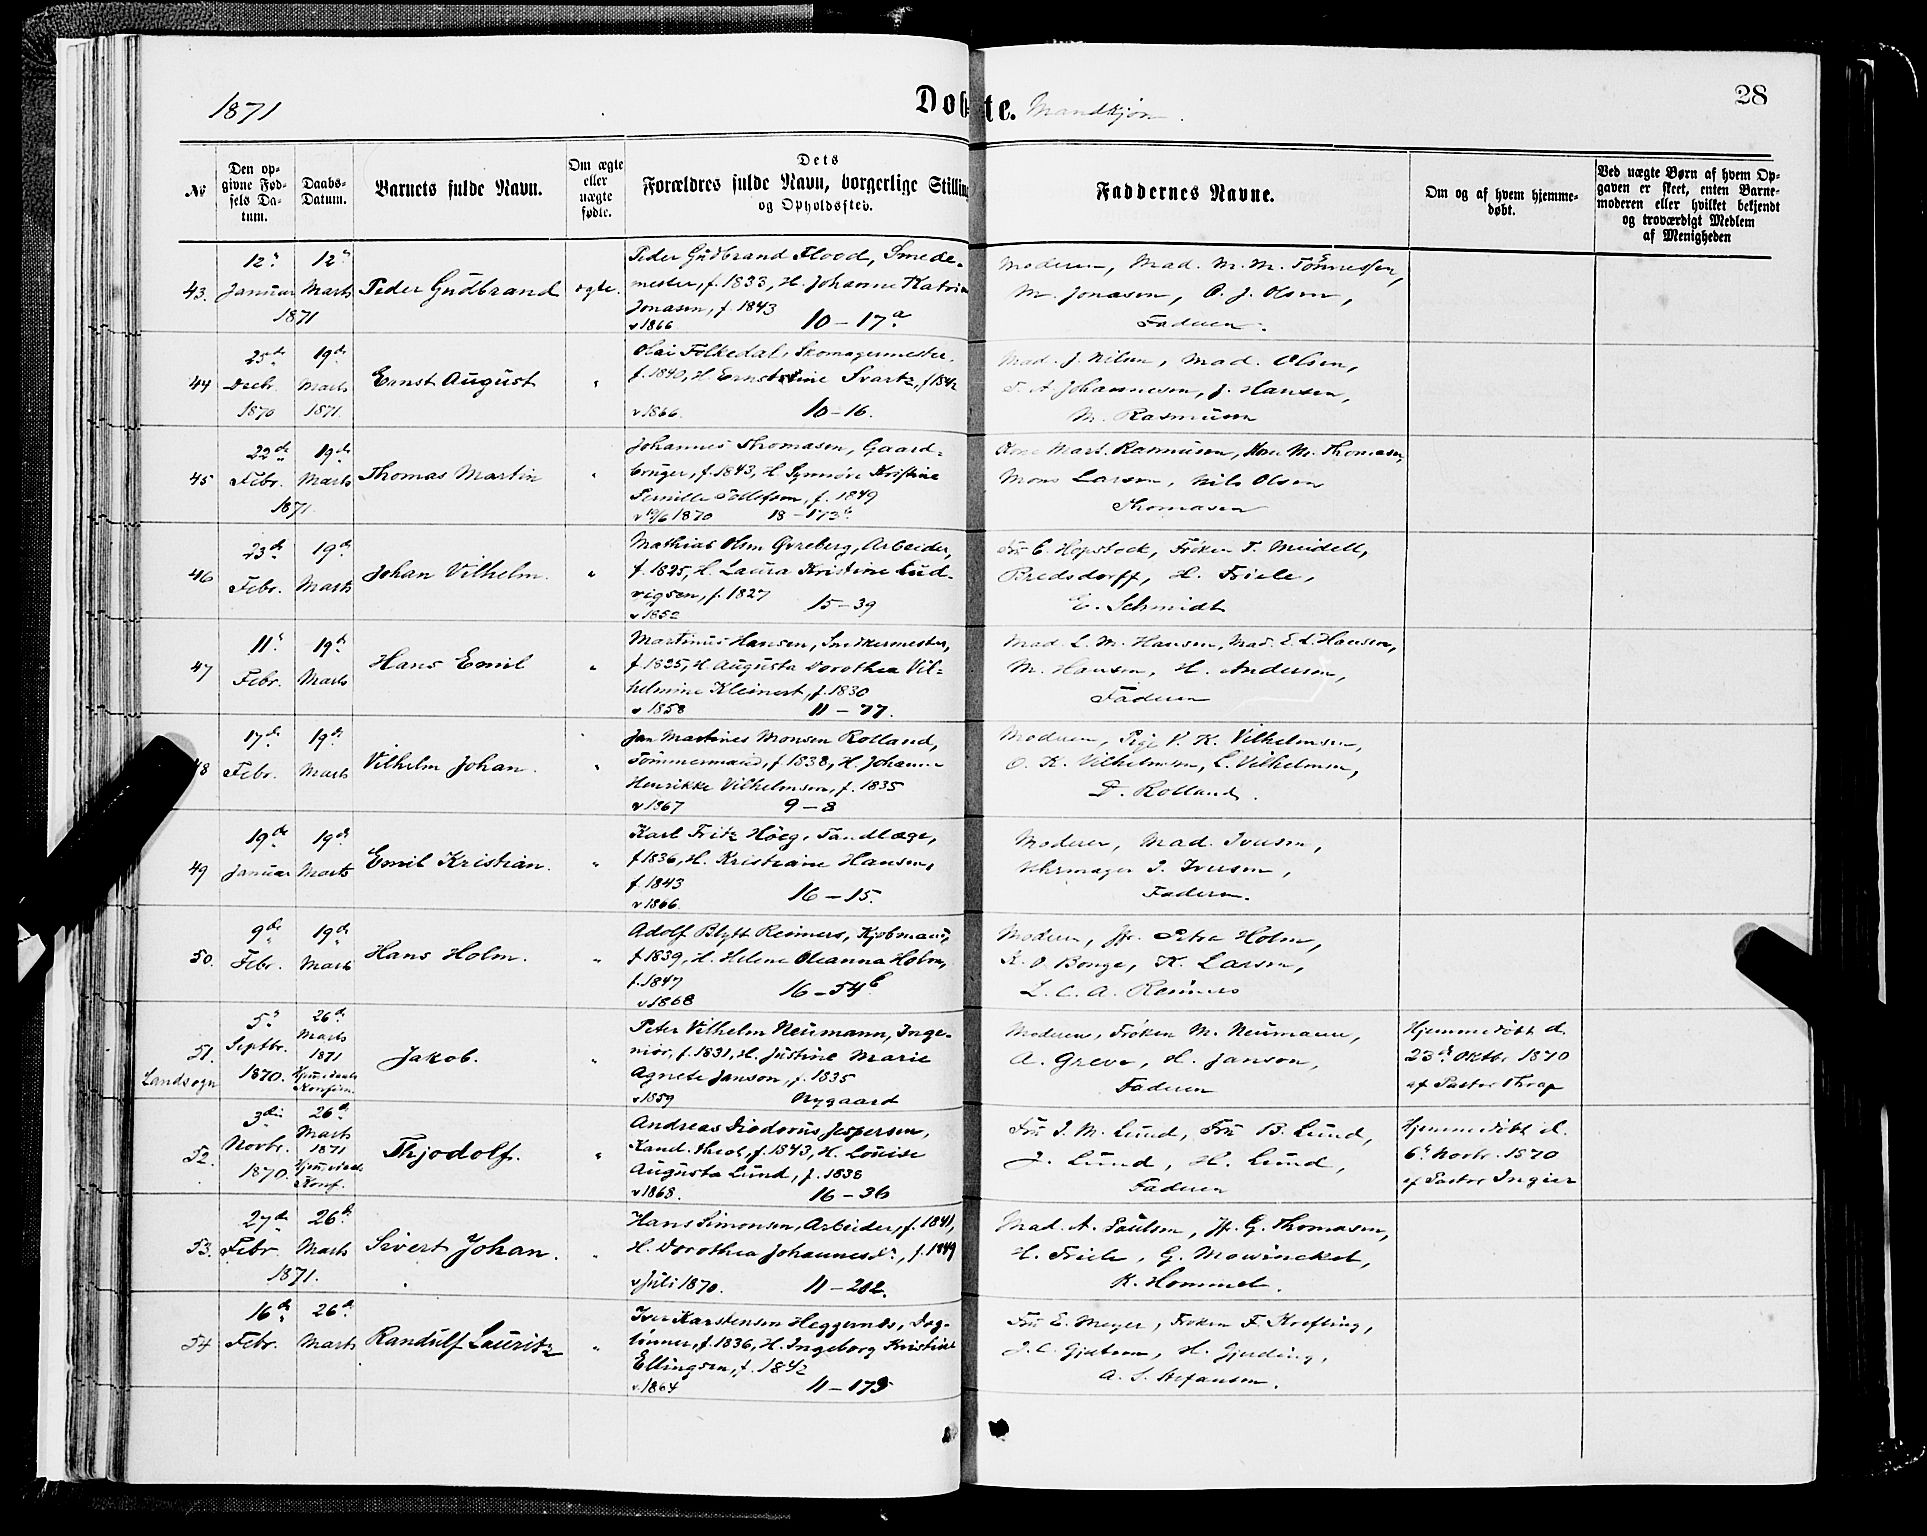 1871
Døbte. Mandkjøn.
28
No
Den opgivne Fødsels Datum.
Daabs-Datum.
Barnets fulde Navn.
Om ægte eller uægte fødte.
Dets Forældres fulde Navn, borgerlige Stilling og Opholdssted.
Faddernes Navne.
Om og af hvem hjemmedøbt.
Ved uægte Børn af hvem Opgaven er skeet, enten Barnemoderen eller hvilket bekjendt og troværdigt Medlem af Menigheden
43. 12te Januar 1871 12te Marts Peder Gudbrand ægte.
Peder Gudbrand Flood, Smede-
mester, f. 1833, H. Johanne Katrine
Jonasen, f. 1843
v 1866 10 – 17a
Moderen, Mad. M. M. Tönnessen,
M. Jonasen, O. J. Olsen,
Faderen.
44 25de Decbr. 1870 19de Marts 1871. Ernst August "
Olai Folkedal, Skomagermester,
f. 1840, H. Ernstine Svartz, f 1842
v 1866. 10 – 16.
Mad. J. Nilsen, Mad. Olsen,
T. A. Johannesen, J. Hansen,
M. Rasmusen
45 22de Febr. 1871 19de Marts Thomas Martin "
Johannes Thomasen, Gaard-
bruger, f. 1843, H. Synnöve Kristine
Pernille Tollefsen, f. 1849
v 19/6 1870 18 – 173b
Kone Mart. Rasmusen, Kone M. Thomasen,
Mons Larsen, Nils Olsen
Thomasen
46 23de Febr. 19de Marts Johan Vilhelm. "
Mathias Olsen Gvreberg, Arbeider,
f. 1825, H. Laura Kristine Lud-
vigsen, f. 1827
v 1852 15 – 39
Fru C. Hopstock, Fröken T. Meidell,
Bredsdorff, H. Friele,
E. Schmidt
47 11te Febr. 19de Marts Hans Emil "
Martinus Hansen, Snedkermester,
f. 1825, H. Augusta Dorothea Vil-
helmine Kleinert, f. 1830
v 1858 11 – 77.
Mad. L. M. Hansen, Mad. E. L. Hansen,
M. Hansen, H. Andersen,
Faderen
48 17de Febr. 19de Marts Vilhelm Johan. "
Jan Martines Monsen Rolland,
Tömmermand, f 1838, H. Johanne
Henrikke Vilhelmsen, f. 1835
v 1867 9 – 8
Moderen, Pige V. K. Vilhelmsen,
O. K. Vilhelmsen, L. Vilhelmsen,
D. Rolland.
49 19de Januar 19de Marts Emil Kristian. "
Karl Fritz Höeg, Tandlæge,
f 1836, H. Kristiane Hansen,
f. 1843
v 1866. 16 – 15.
Moderen, Mad. Iversen,
Uhrmager I. Iversen,
Faderen.
50. 9de Febr. 19de Marts Hans Holm. "
Adolf Blytt Reimers, Kjøbmand,
f 1839, H. Helene Oleanna Holm,
f. 1847
v 1868 16 – 54b
Moderen, Fr. Petra Holm,
K. O. Bonge, K. Larsen,
L. C. A. Reimers
51. Landsogn 5te Septbr. 1870. 26de Marts 1871 Hjemmedaab Konfirm. Jakob. "
Peter Vilhelm Neumann, Inge-
niør, f. 1831, H. Justine Marie
Agnete Janson, f. 1835
v 1859 Nygaard
Moderen, Fröken M. Neumann,
A. Greve, H. Janson,
Faderen
Hjemmedöbt d.
23de Oktbr. 1870
af Pastor Thrap
52. 3die Novbr. 1870. 26de Marts 1871 Hjemmedaab Konf. Thjodolf. "
Andreas Diodorus Jespersen,
Kand. theol, f. 1843, H. Louise
Augusta Lund, f. 1838
v 1868. 16 – 36
Fru I. M. Lund, Fru B. Lund,
J. Lund, H. Lund,
Faderen
Hjemmedöbt d.
6te Novbr. 1870
af Pastor Ingier
53. 27de Febr. 1871. 26de Marts Sivert Johan. "
Hans Simonsen, Arbeider, f. 1841,
H. Dorothea Johannesdr., f. 1849
v Juli 1870. 11 – 202.
Mad. A. Paulsen, Fr. G. Thomasen,
H. Friele, G. Mowinckel,
K. Hommel.
54 16de Febr. 26de Marts Randulf Lauritz "
Iver Karstensen Heggernes, Dag-
lönner, f. 1836, H. Ingeborg Kristine
Ellingsen, f. 1842
v 1864 11 – 179
Fru E. Meyer, Fröken F. Krefting,
J. C. Gjestrum, H. Gjerding,
A. S. Stefansen.